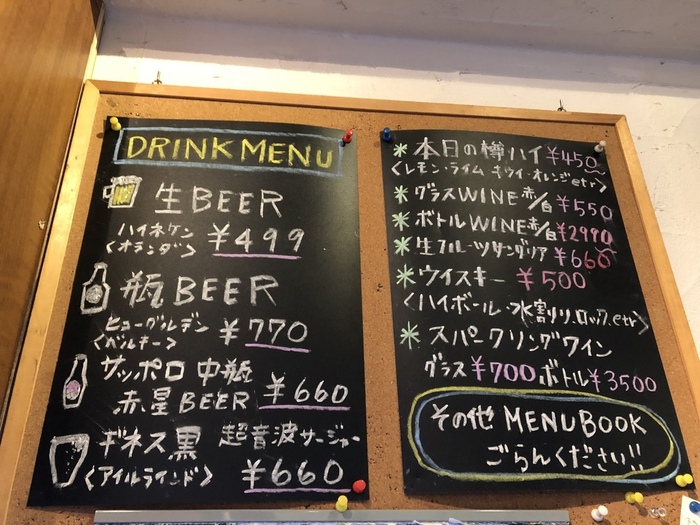 DRINK MENU
生BEER
ハイネケン
<オランダ> ¥499
瓶BEER
ヒューグルデン
<ベルギー> ¥770
サッポロ 中瓶
赤星BEER ¥660
ギネス黒 超音波サージャー
<アイルランド> ¥660
* 本日の樽ハイ ¥450~
<レモン・ライム キウイ・オレンジetr>
* グラスWINE 赤/白 ¥550
* ボトルWINE 赤/白 ¥2990
* 生フルーツサングリア ¥660
* ウイスキー ¥500
<ハイボール・水割り、ロック、etr>
* スパークリングワイン
グラス¥700 ボトル¥3500
その他 MENU BOOK
ごらんください!!